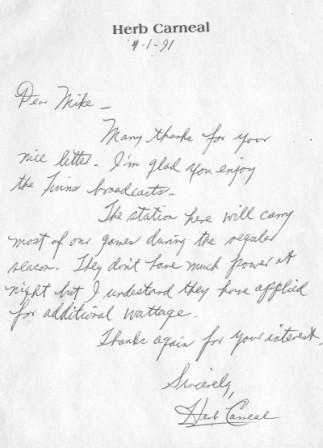 Herb Carneal
4-1-91
Dear Mike -
Many thanks for your
nice letter. I'm glad you enjoy
the Twins broadcasts.
The station here will carry
most of our games during the regular
season. They don't have much power at
night but I understand they have applied
for additional wattage.
Thanks again for your interest.
Sincerely,
Herb Carneal